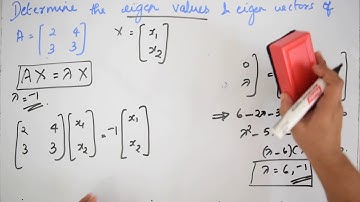 Determine the eigen values & eigen vectors of
A = [2 4
3 3] X = [x₁
x₂]
AX = λX
λ = -1
[2 4
3 3] [x₁
x₂] = -1 [x₁
x₂]
0
λ] = [
⇒ 6 - 2λ - 3
λ² - 5
(λ-6)(
λ = 6, -1